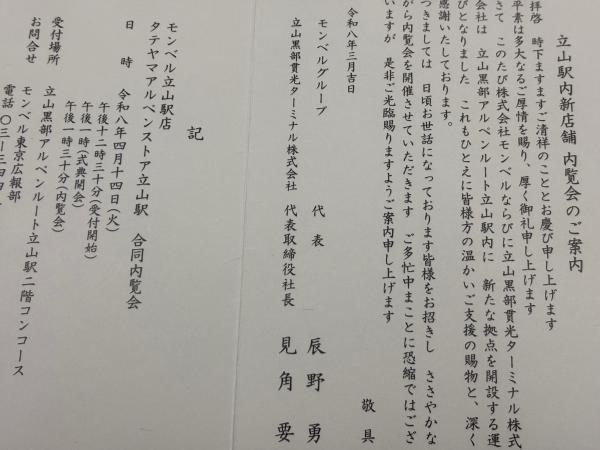 立山駅内新店舗 内覧会のご案内
拝啓 時下ますますご清祥のこととお慶び申し上げます
平素は多大なるご厚情を賜り、厚く御礼申し上げます
さて このたび株式会社モンベルならびに立山黒部貫光ターミナル株式
会社は 立山黒部アルペンルート立山駅内に 新たな拠点を開設する運
びとなりました これもひとえに皆様方の温かいご支援の賜物と、深く
感謝いたしております。
つきましては 日頃お世話になっております皆様をお招きし ささやかな
がら内覧会を開催させていただきます ご多忙中まことに恐縮ではござ
いますが 是非ご光臨賜りますようご案内申し上げます
敬具
令和八年三月吉日
モンベルグループ 代表 辰野勇
立山黒部貫光ターミナル株式会社 代表取締役社長 見角要
記
モンベル立山駅店
タテヤマアルペンストア立山駅 合同内覧会
日時 令和八年四月十四日(火)
午後十二時三十分(受付開始)
午後一時(式典開会)
午後一時三十分(内覧会)
受付場所 立山黒部アルペンルート立山駅二階コンコース
お問合せ モンベル東京広報部
電話 〇三ー三四